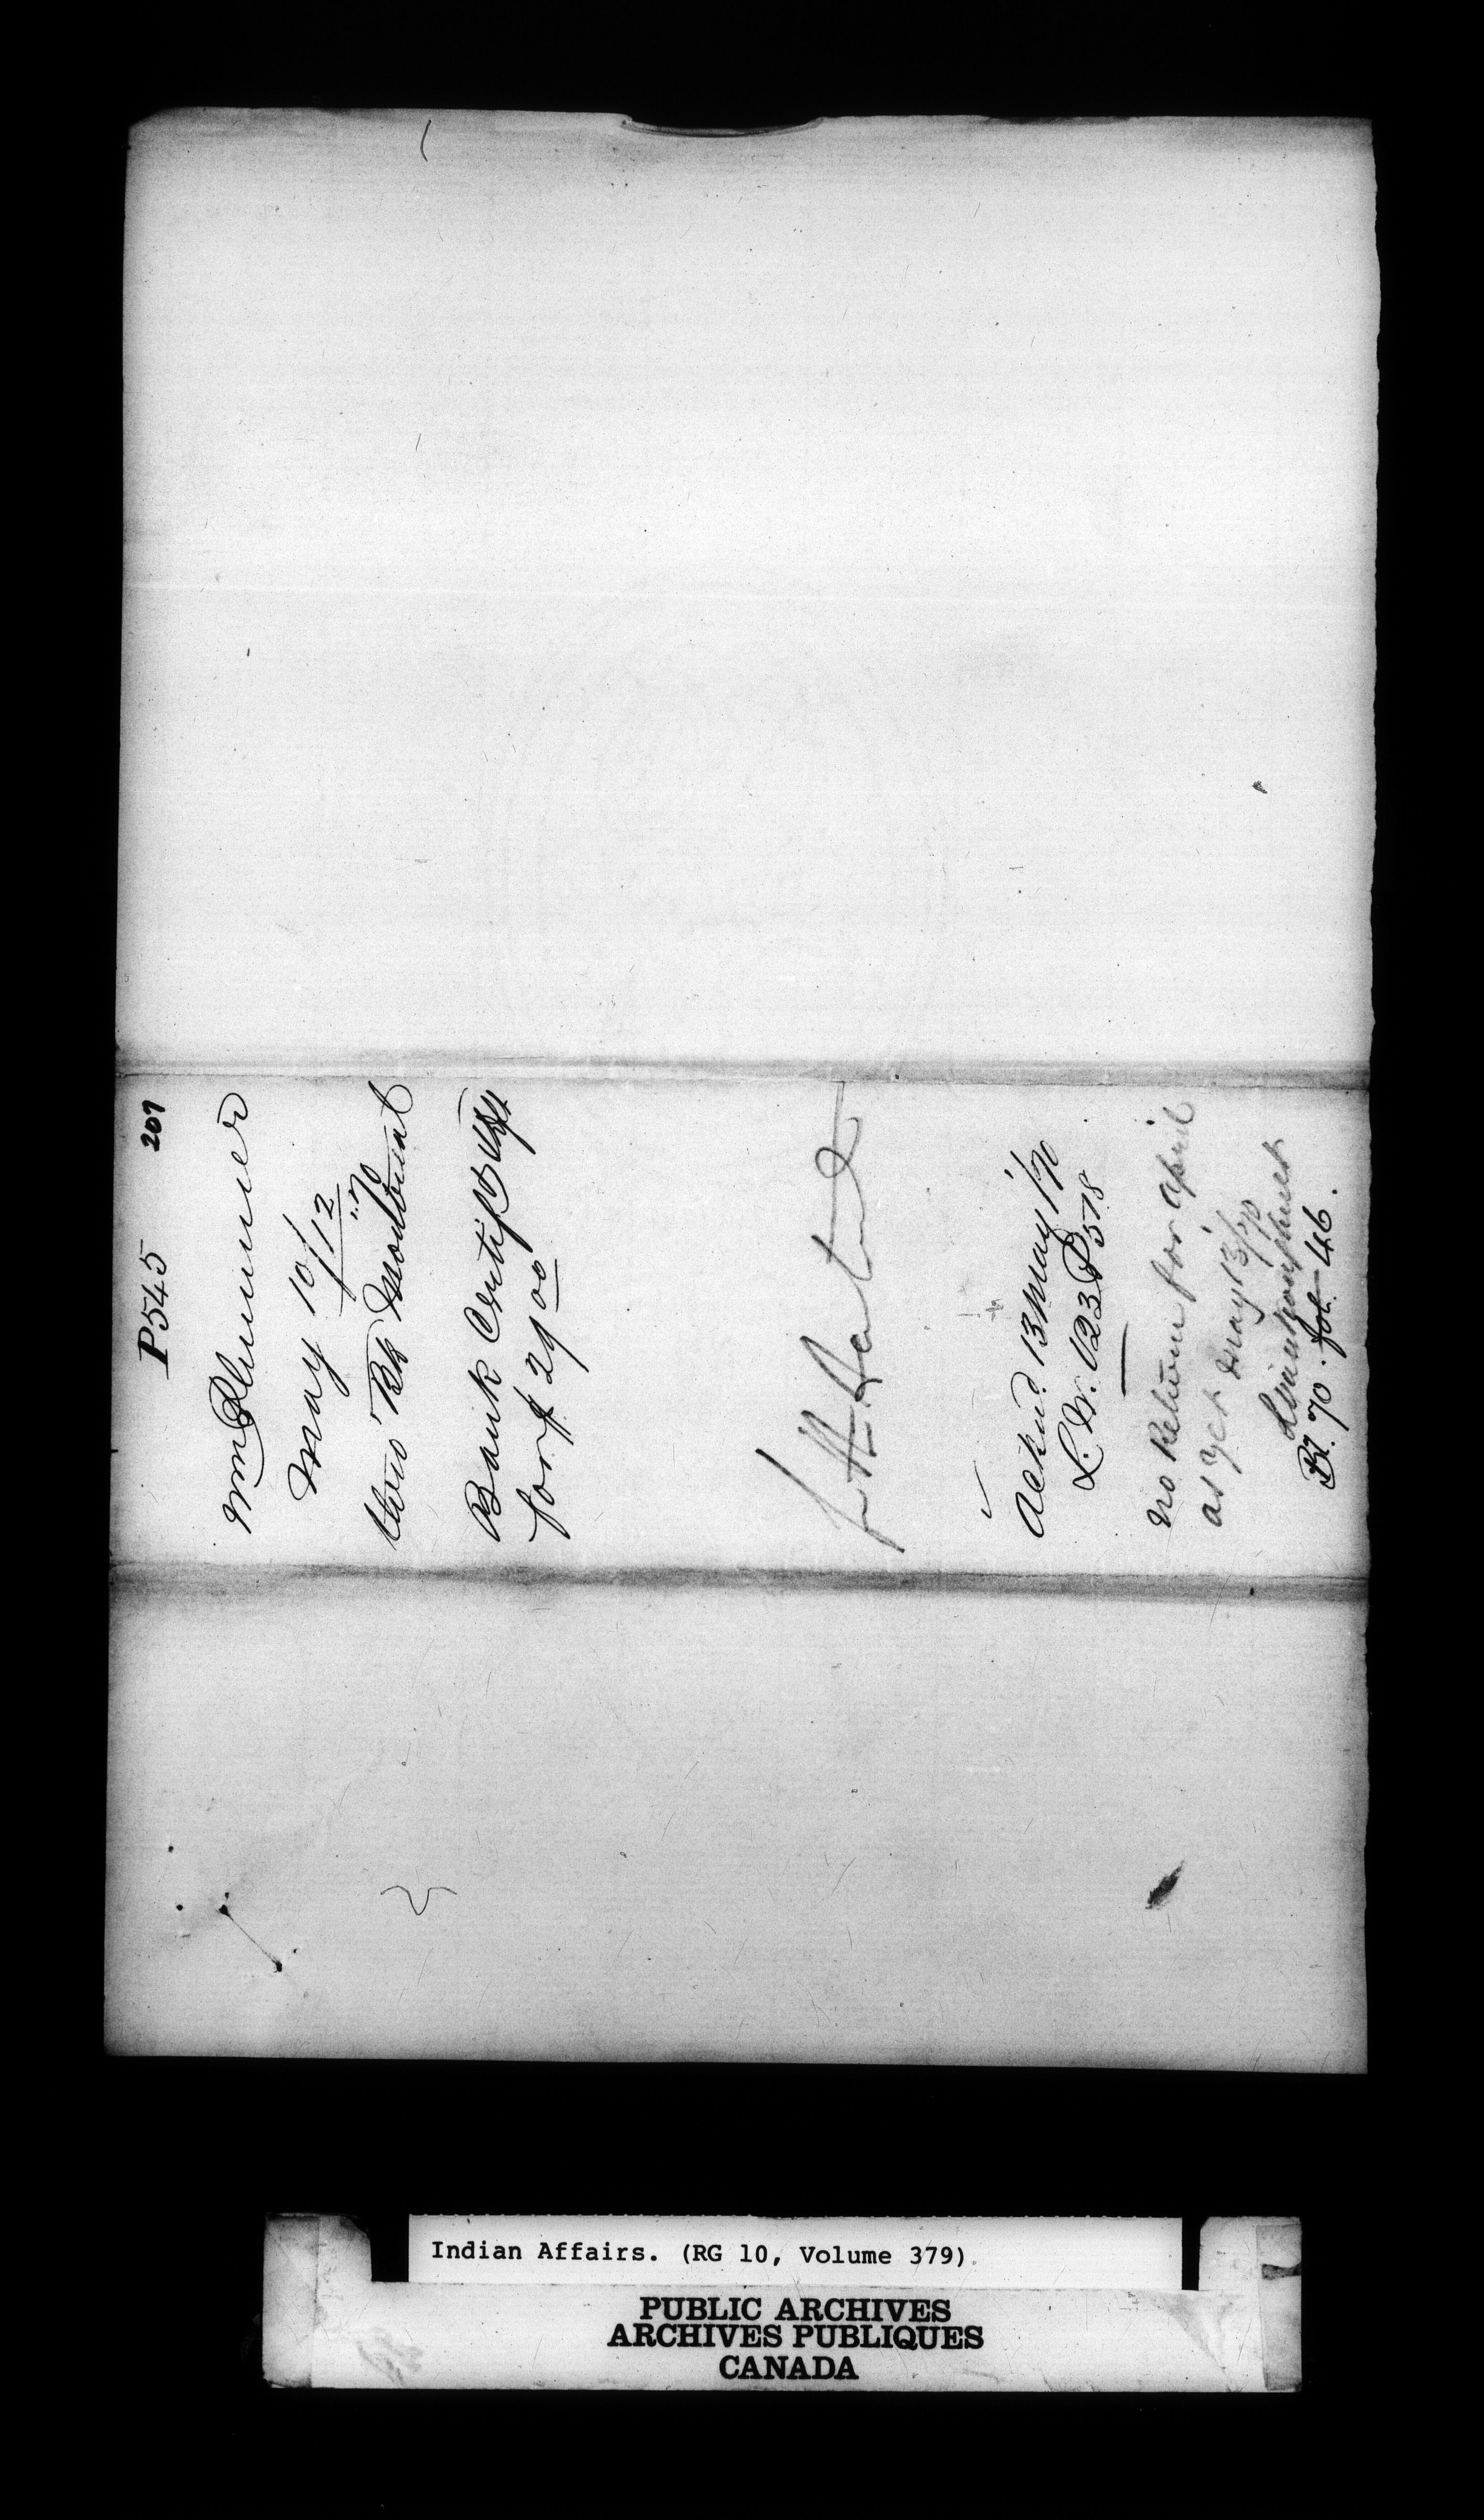 P545 207
Wm Plummer
May 10/12 "70
thro' Bk Montreal
Bank Certif
for $ 29 00
Ackd. 13 May /70
L. Nr. 123 P 578
No Return for April
as yet May 13/70
Bl. 70. fol. 46.
Indian Affairs. (RG 10, Volume 379)
PUBLIC ARCHIVES
ARCHIVES PUBLIQUES
CANADA